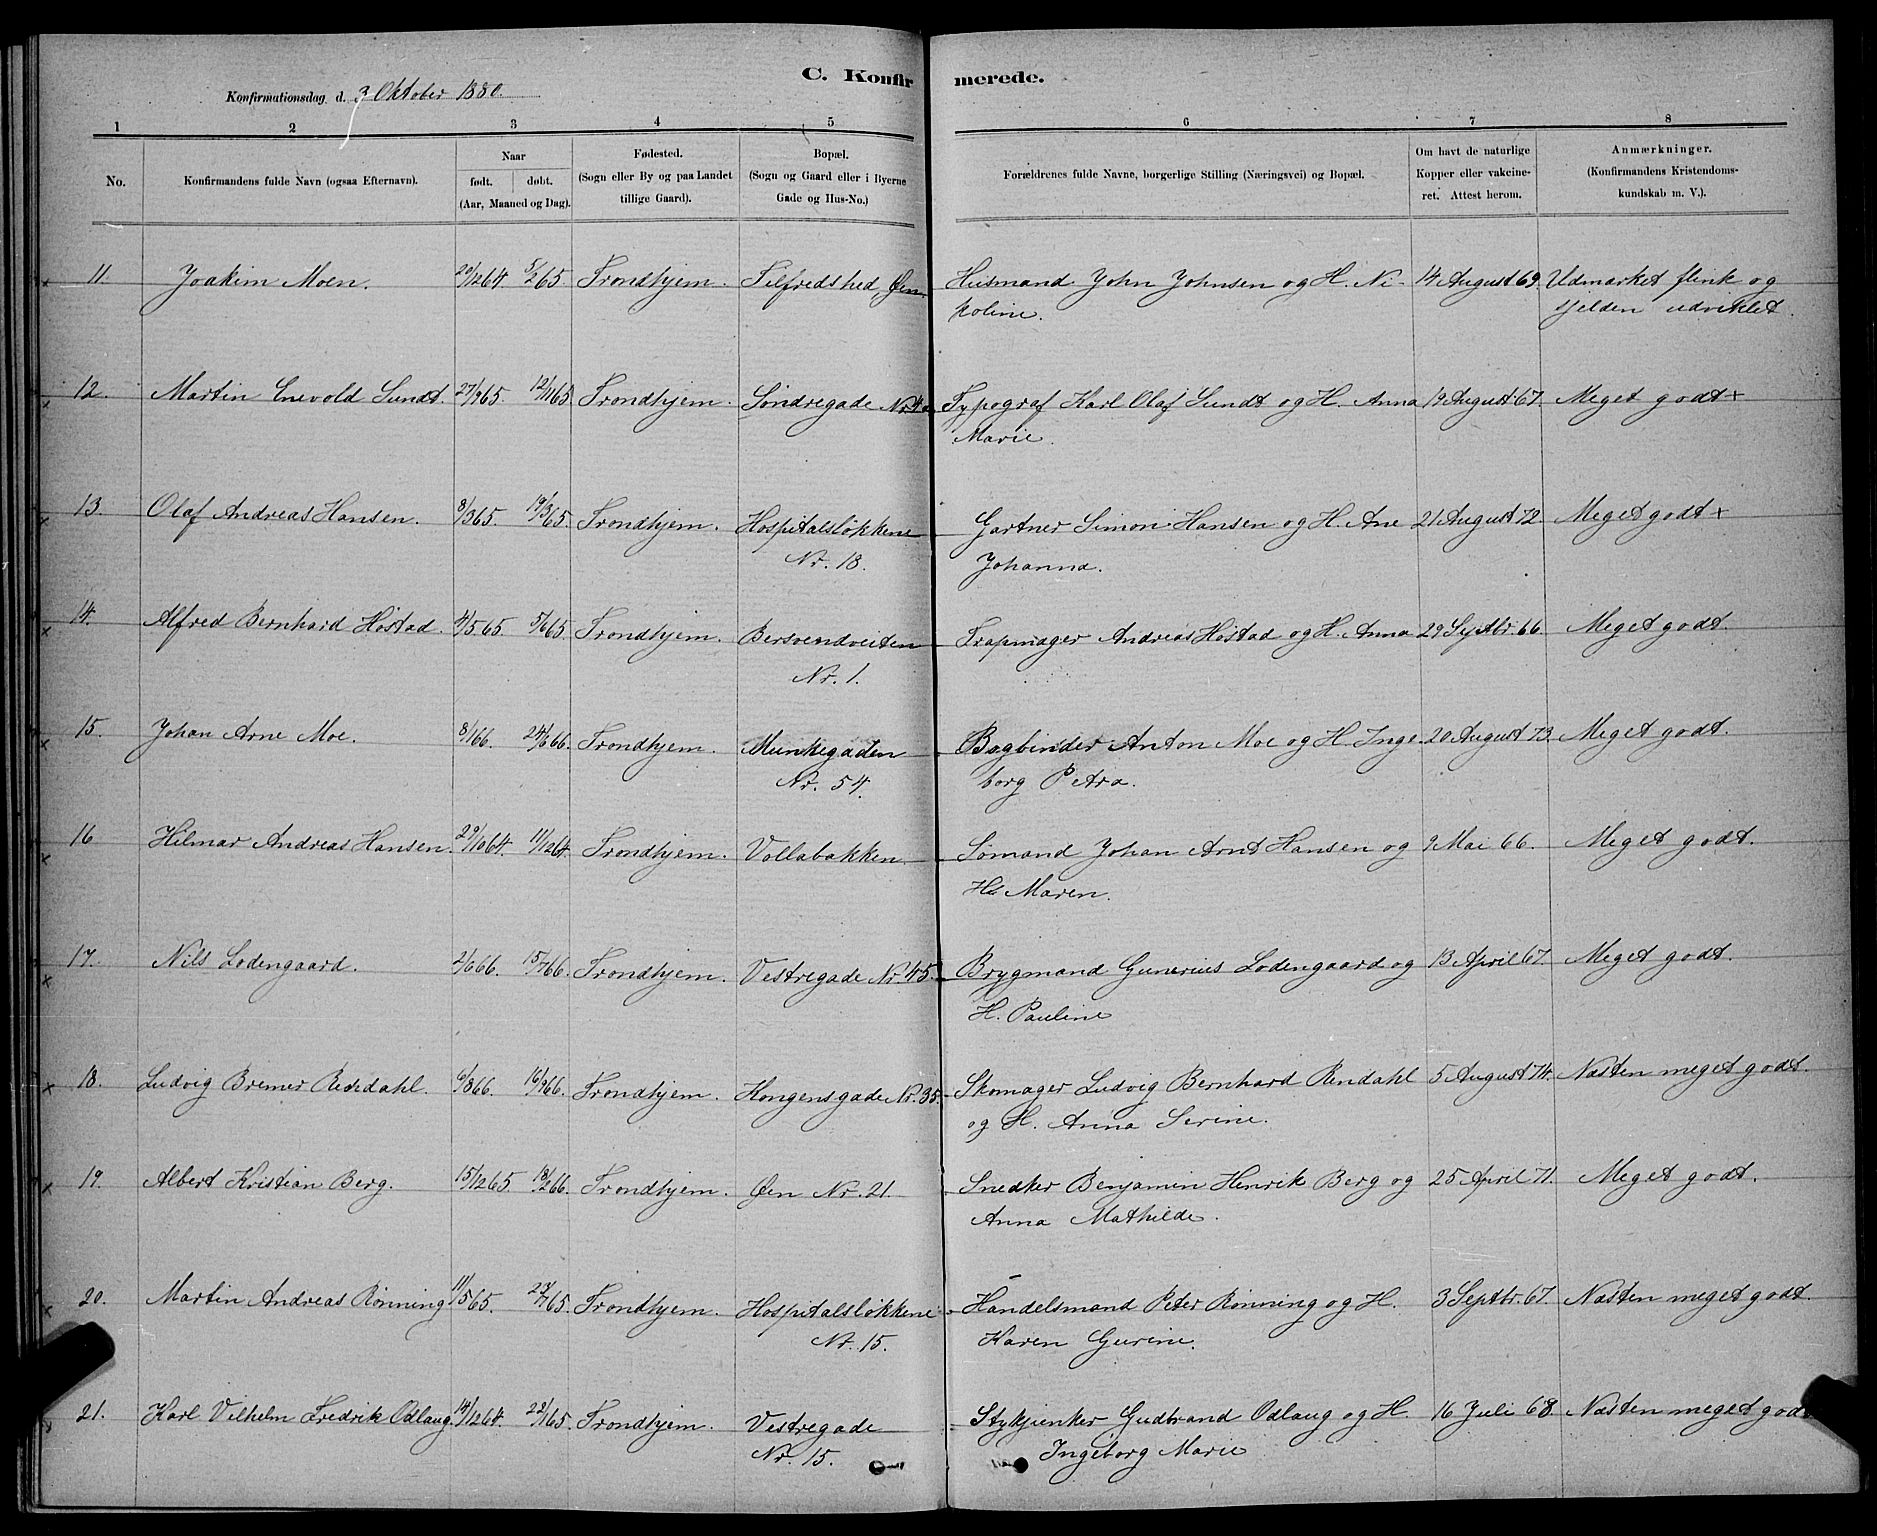 C. Konfirmerede.
Konfirmationsdag d. 3 Oktober 1880.
1 2 3 4 5 6 7 8
No. Konfirmandens fulde Navn (ogsaa Efternavn). Naar født. døbt. (Aar, Maaned og Dag). Fødested. (Sogn eller By og paa Landet tillige Gaard). Bopæl. (Sogn og Gaard eller i Byerne Gade og Hus-No.) Forældrenes fulde Navne, borgerlige Stilling (Næringsvei) og Bopæl. Om havt de naturlige Kopper eller vakcineret. Attest herom. Anmærkninger. (Konfirmandens Kristendomskundskab m. V.).
11. Joakim Moen. 20/12 64. 5/2 65. Trondhjem. Tilfredshed Øen. Husmand John Johnsen og H. Ni- 14 August 69. Udmærket flink og
koline. sjelden udviklet.
12. Martin Enevold Sundt. 27/9 65. 12/11 65. Trondhjem. Søndregade Typograf Karl Olaf Sundt og H. Anna 19 August 67. Meget godt +
Marie.
13. Olaf Andreas Hansen. 8/3 65. 19/3 65. Trondhjem. Hospitalsløkkene Gartner Simon Hansen og H. Ane 21 August 72. Meget godt +
Nr. 18. Johanna.
14. Alfred Bernhard Høstad. 4/5 65. 5/6 65. Trondhjem. Bersvendveiten Trapmager Andreas Høstad og H. Anna 29 Septbr. 66. Meget godt.
Nr. 1.
15. Johan Arne Moe. 8/1 66. 24/6 66. Trondhjem. Munkegaden Bogbinder Anton Moe og H. Inge- 20 August 73. Meget godt.
Nr. 54. borg Petra.
16 Hilmar Andreas Hansen. 29/10 64. 11/12 64. Trondhjem. Vollabakken Sømand Johan Arnt Hansen og 9 Mai 66. Meget godt.
H. Maren.
17. Nils Lodengaard. 2/6 66. 15/7 66. Trondhjem. Vestregade Nr. 45. Brygmand Gunerius Lodengaard og 13 April 67. Meget godt.
H. Pauline
18. Ludvig Bremer Rendahl. 6/8 66. 16/9 66. Trondhjem. Kongensgade Nr. 35. Skomager Ludvig Bernhard Rendahl 5 August 74. Næsten meget godt.
og H. Anna Serine.
19. Albert Kristian Berg. 15/12 65. 18/2 66. Trondhjem. Øen Nr. 21 Snedker Benjamin Henrik Berg og 25 April 71. Meget godt.
Anna Mathilde.
20. Martin Andreas Rønning 11/5 65. 23/7 65. Trondhjem. Hospitalsløkkene Handelsmand Peter Rønning og H. 3 Septbr. 67. Næsten meget godt.
Nr. 15. Karen Gurine.
21. Karl Vilhelm Fredrik Odlaug. 14/12 64. 22/1 65. Trondhjem. Vestregade Stykjunker Gudbrand Odlaug og H. 16 Juli 68 Næsten meget godt
Nr. 15. Ingeborg Marie